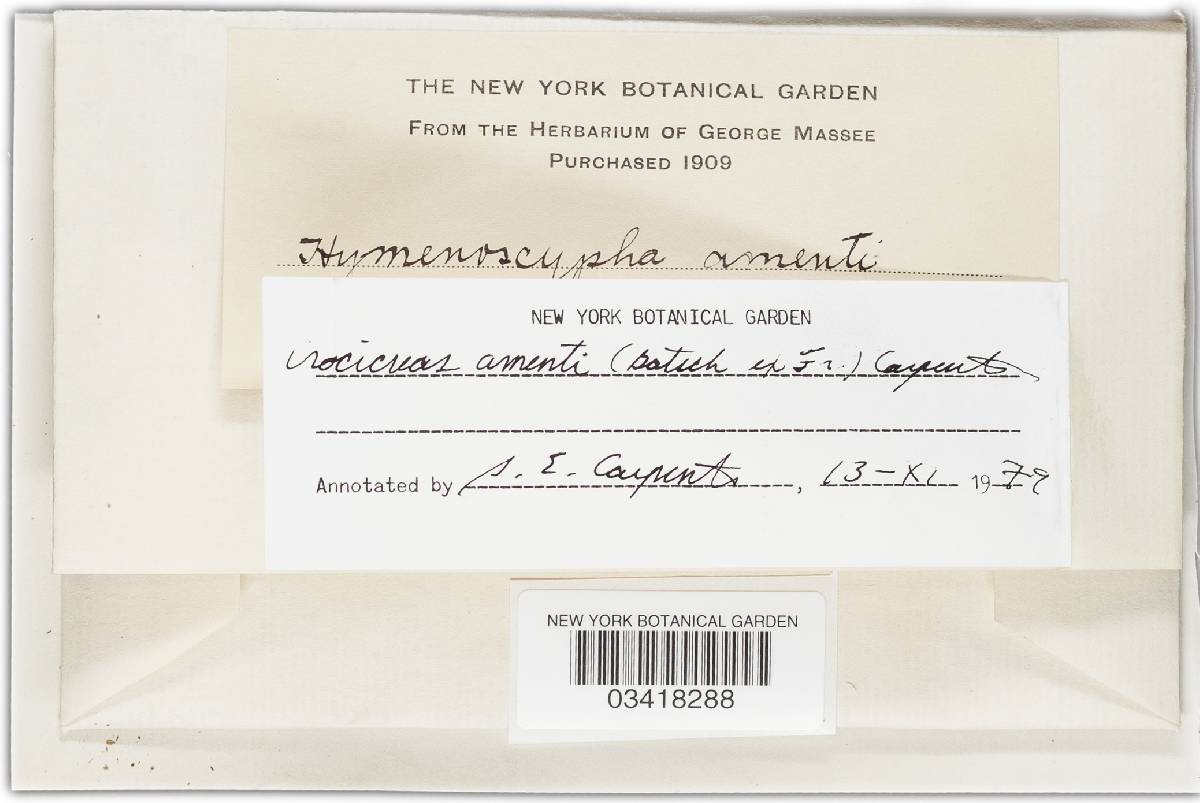 THE NEW YORK BOTANICAL GARDEN
FROM THE HERBARIUM OF GEORGE MASSEE
PURCHASED 1909
Hymenoscypha amenti
NEW YORK BOTANICAL GARDEN
Crocicreas amenti (Batsch ex Fr.) Carpenter
Annotated by S. E. Carpenter, 13-XI 1979
NEW YORK BOTANICAL GARDEN
03418288